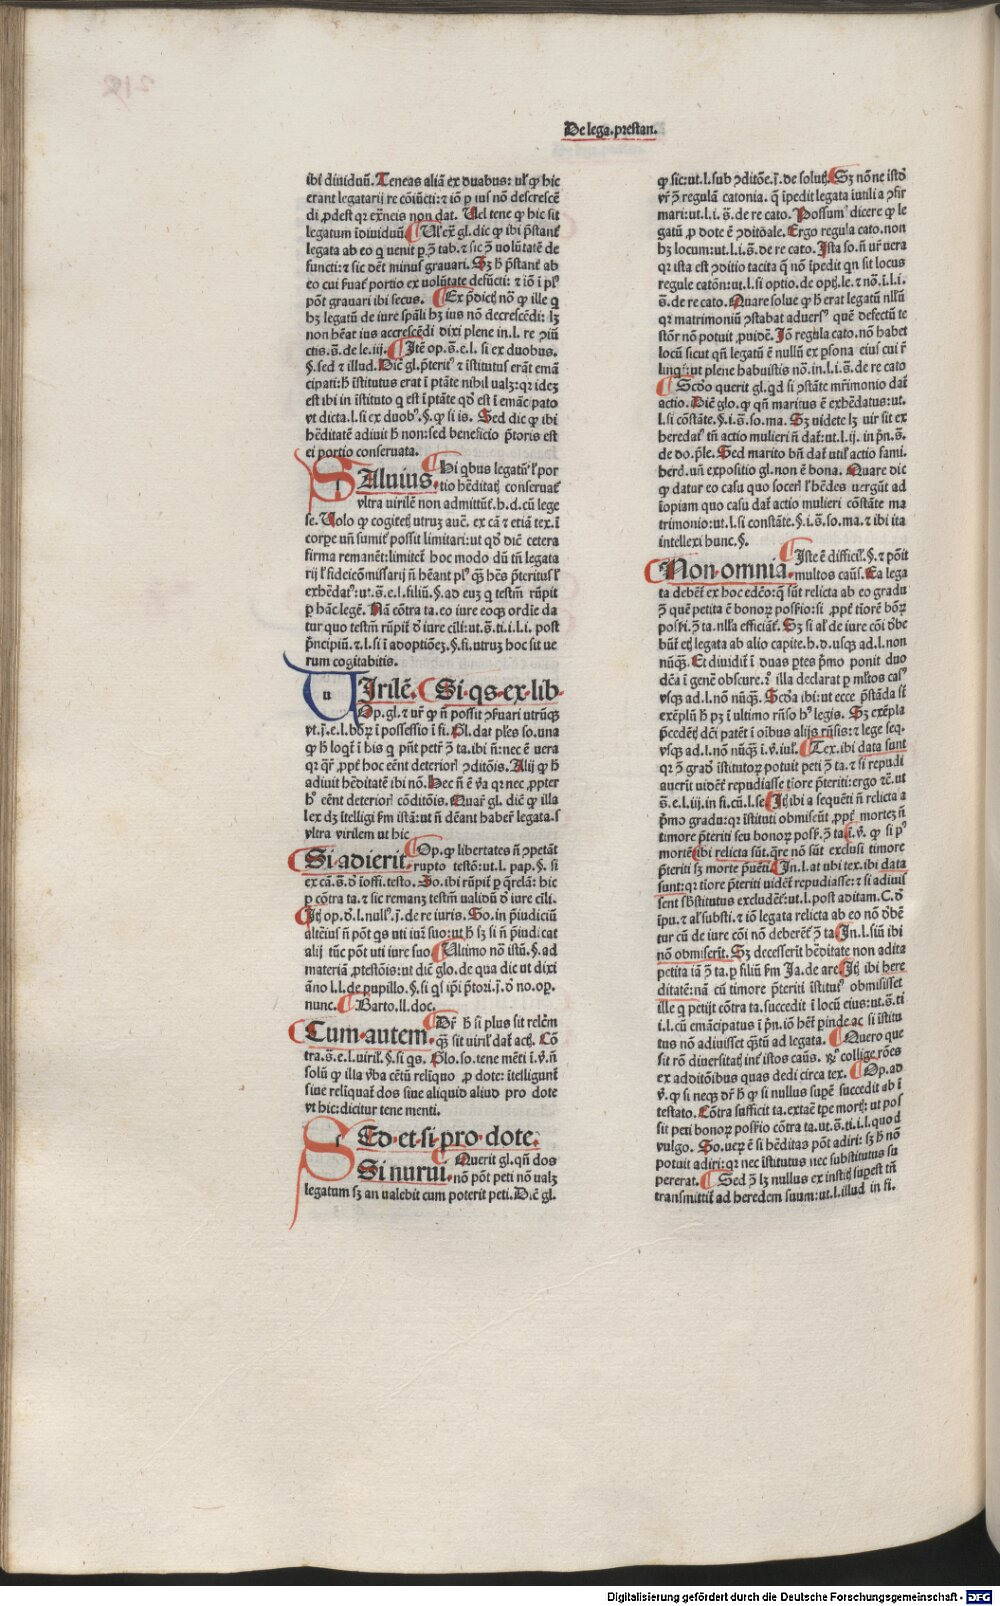 De lega. prestan.
ibi diuiduū. Teneas aliā ex duabus: ul' ꝙ hic
erant legatarij re cōiūcti: ⁊ iō ꝑ ius nō descrescē
di ꝓdest qr exn̄cis non dat. Uel tene ꝙ hic sit
legatum īdiuiduū ¶ Ul' ex̄. gl. dic ꝙ ibi p̄stant
legata ab eo q uenit ꝑ ꝯ̄ tab. ⁊ sic ꝯ̄ uolūtatē de
functi: ⁊ sic dēt minus grauari. Sꝫ h̄ p̄stant̄ ab
eo cui fuat̄ portio ex uolūtate defūcti: ⁊ iō ī pl'
pōt grauari ibi secus. ¶ Ex p̄dictꝭ nō ꝙ ille q
hꝫ legatū de iure sp̄ali hꝫ ius nō decrescēdi: lꝫ
non hēat ius accrescēdi dixi plene in. l. re ꝯiū
ctis. s̄. de le. iij. ¶ Itē op. s̄. e. l. si ex duobus.
§. sed ⁊ illud. Dic̄ gl. p̄terit' ⁊ īstitutus erāt emā
cipati: h̄ īstitutus erat ī ptāte nihil ualꝫ: qr ideꝫ
est ibi in īstituto q est ī ptāte qd' est ī emācipato
vt dicta. l. si ex duob'. §. ꝙ si is. Sed dic ꝙ ibi
hēditatē adiuit h̄ non: sed beneficio p̄toris est
ei portio conseruata.
SAluius. ¶ Hi qbus legatū l' por
tio hēditatꝭ conseruat̄
vltra uirilē non admittūt. h. d. cū lege
se. Uolo ꝙ cogitetꝭ utruꝫ auc̄. ex cā ⁊ etiā tex. ī
corpe un̄ sumit̄ possit limitari: ut qd' dic̄ cetera
firma remanēt: limitet̄ hoc modo dū tn̄ legata
rij l' fideicōmissarij n̄ hēant pl' qꝫ hēs p̄teritus l'
exhēdat': ut. s̄. e. l. filiū. §. ad euꝫ q testm̄ rūpit
ꝑ hāc legē. Nā cōtra ta. eo iure eoqꝫ ordīe da
tur quo testm̄ rūpit̄ d' iure cīli: ut. s̄. ti. i. l. i. post
p̄ncipiū. ⁊. l. si ī adoptiōeꝫ. §. fi. utruꝫ hoc sit ue
rum cogitabitis.
UIrilē. ¶ Si. qs. ex. lib.
Op. gl. ⁊ ur̄ ꝙ n̄ possit ꝯfuari utrūqꝫ
vt. j̄. e. l. boꝝ ī possessio ī fi. Pl. dat pl'es so. una
ꝙ h̄ loqt̄ ī his q pn̄t petr̄ ꝯ̄ ta. ibi n̄: nec ē uera
qr qr̄ ꝓpt̄ hoc eēnt deterior' ꝯditōis. Alij ꝙ h̄
adiuit hēditatē ibi nō. Hec n̄ ē v̄a qr nec ꝓpter
h' eēnt deterior' cōditōis. Quar̄ gl. dic̄ ꝙ illa
lex dꝫ ītelligi km̄ istā: ut n̄ dēant haber̄ legata. s̄
vltra virilem ut hic
¶ Si. adierit. ¶ Op. ꝙ libertates n̄ ꝯpetāt
rupto testō: ut. l. pap. §. si
ex cā. s̄. d' īoffi. testo. So. ibi rūpit̄ ꝑ qrelā: hic
ꝑ cōtra ta. ⁊ sic remanꝫ testm̄ ualidū d' iure cīli.
¶ Itꝫ op. d'. l. null'. j̄. de re iuris. So. in p̄iudiciū
altēius n̄ pōt qs uti iur̄ suo: ut h̄ sꝫ si n̄ p̄iudicat
alij tūc pōt uti iure suo ¶ Ultimo nō istū. §. ad
materiā ꝓtestōis: ut dic̄ glo. de qua dic ut dixi
āno. l. l. de pupillo. §. si qs ip̄i p̄tori. j̄. d' no. oꝑ.
nunc. ¶ Barto. ll. doc.
¶ Cum. autem. ¶ Dr̄ h̄ si plus sit relem̄
qꝫ sit uiril' dat̄ actꝭ. Cō
tra. s̄. e. l. viril'. §. si qs. Plo. so. tene mēti ī. v̄. n̄
solū ꝙ illa v̄ba cētū reliquo ꝓ dote: ītelligunt̄
siue reliquat̄ dos siue aliquid aliud pro dote
vt hic: dicitur tene menti.
SEd. et. si. pro. dote.
Si nurui. ¶ Querit gl. qn̄ dos
nō pōt peti nō ualꝫ
legatum sꝫ an ualebit cum poterit peti. Dic̄ gl.
ꝙ sic: ut. l. sub ꝯditōe. j̄. de solutꝭ. ¶ Sꝫ nōne istd'
vr̄ ꝯ̄ regulā catonia. q īpedit legata iutilia ꝯfir
mari: ut. l. i. s̄. de re cato. Possum' dicere ꝙ le
gatū ꝓ dote ē ꝯditōale. Ergo regula cato. non
hꝫ locum: ut. l. i. s̄. de re cato. Ista so. n̄ ur̄ uera
qr ista est ꝯditio tacita q nō īpedit qn sit locus
regule catōn: ut. l. si optio. de optꝭ. le. ⁊ nō. ī. l. i.
s̄. de re cato. Quare solue ꝙ h̄ erat legatū nllū
qr matrimoniū ꝯstabat aduers' quē defectū te
stōr nō potuit ꝓuidē. Iō regula cato. nō habet
locū sicut qn̄ legatū ē nullū ex ꝑsona eius cui r̄
linqt̄: ut plene habuistis nō. in. l. i. s̄. de re cato
¶ Scdo querit gl. qd si ꝯstāte mr̄imonio dat̄
actio. Dic̄ glo. ꝙ qn̄ maritus ē exhēdatus: ut.
l. si cōstāte. §. i. s̄. so. ma. Sꝫ uidete lꝫ uir sit ex
heredat' tn̄ actio mulieri n̄ dat̄: ut. l. ij. in p̄n. s̄.
de do. p̄le. Sed marito bn̄ dat̄ util' actio fami.
herd'. un̄ expositio gl. non ē bona. Quare dic
ꝙ datur eo casu quo soceri l' hēdes uergūt ad
īopiam quo casu dat̄ actio mulieri cōstāte ma
trimonio: ut. l. si constāte. §. i. s̄. so. ma. ⁊ ibi ita
intellexi hunc. §.
¶ Non. omnia. ¶ Iste ē difficil'. §. ⁊ pōit
multos caūs. Ea lega
ta debēt ex hoc edcō: q sūt relicta ab eo gradu
ꝯ̄ quē petita ē bonoꝝ possio: si ꝓpt̄ tiorē bōꝝ
poss̄i. ꝯ̄ ta. nlla efficiat̄. Sꝫ si al' de iure cōi d'be
būt̄ etꝭ legata ab alio capite. h. d. usqꝫ ad. l. non
nūqꝫ. Et diuidit̄ ī duas ꝑtes p̄mo ponit duo
dc̄a ī genē obscure. 2'. illa declarat ꝑ ml'tos cas'
vsqꝫ ad. l. nō nūqꝫ. Scd'a ibi: ut ecce p̄stāda s̄t
exēplū h̄ pꝫ ī ultimo rn̄so h' legis. Sꝫ exēpla
p̄cedētꝭ dc̄i patēt ī oībus alijs rn̄sis: ⁊ lege seq.
vsqꝫ ad. l. nō nūqꝫ ī. v̄. iul'. ¶ Tex. ibi data sunt
qr ꝯ̄ grad' īstitutoꝝ potuit peti ꝯ̄ ta. ⁊ si repudi
auerit uidet̄ repudiasse tiore p̄teriti: ergo ⁊c̄. ut
s̄. e. l. iij. in fi. cū. l. se. ¶ Itꝭ ibi a sequēti n̄ relicta a
p̄mo gradu: qr īstituti obmiserūt ꝓpt̄ morteꝫ n̄
timore p̄teriti seu bonoꝝ poss̄. ꝯ̄ ta ¶ i. v̄. ꝙ si p'
mortē ¶ ibi relicta sūt. qre nō sūt exclusi timore
p̄teriti sꝫ morte p̄uēti. ¶ In. l. at ubi tex. ibi data
sunt: qr tiore p̄teriti uidet̄ repudiasse: ⁊ si adiuis
sent sb̄stitutus excludēt̄: ut. l. post aditam. C. d'
īpu. ⁊ al' substi. ⁊ iō legata relicta ab eo nō d'bē
tur cū de iure cōi nō deberēt̄ ꝯ̄ ta ¶ In. l. siū ibi
nō obmiserīt. Sꝫ decesserīt hēditate non adita
petita iā ꝯ̄ ta. ꝑ filiū km̄ Ia. de are. ¶ Itꝭ ibi here
ditatē: nā cū timore p̄teriti īstitut' obmisisset
ille q petijt cōtra ta. succedit ī locū eius: ut. s̄. ti
i. l. cū emācipatus ī p̄n. iō hēt̄ ꝑinde ac si īstitu
tus nō adiuisset qꝫtū ad legata. ¶ Quero que
sit rō diuersitatꝭ int̄ istos caūs. colligé rōes
ex additōibus quas dedi circa tex. ¶ Op. ad
v̄. ꝙ si neqꝫ dr̄ h̄ ꝙ si nullus supē succedit ab ī
testato. Cōtra sufficit ta. extaē tpe mortꝭ: ut pos
sit peti bonoꝝ possio cōtra ta. ut. s̄. ti. i. l. quod
vulgo. So. ueꝝ ē si hēditas pōt adiri: sꝫ h̄ nō
potuit adiri: qr nec īstitutus nec substitutus su
pererat. ¶ Sed ꝯ̄ lꝫ nullus ex īstitꝭ supest tn̄
transmittit̄ ad heredem suum: ut. l. illud in fi.
Digitalisierung gefördert durch die Deutsche Forschungsgemeinschaft - DFG